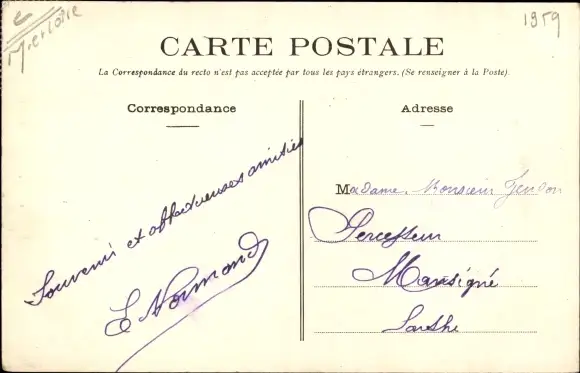 1959
CARTE POSTALE
La Correspondance du recto n'est pas acceptée par tous les pays étrangers. (Se renseigner à la Poste)
Correspondance
Souvenir et affectueuses amitiés
E Normand
Adresse
Madame, Monsieur
Percepteur
Mansigné
Sarthe